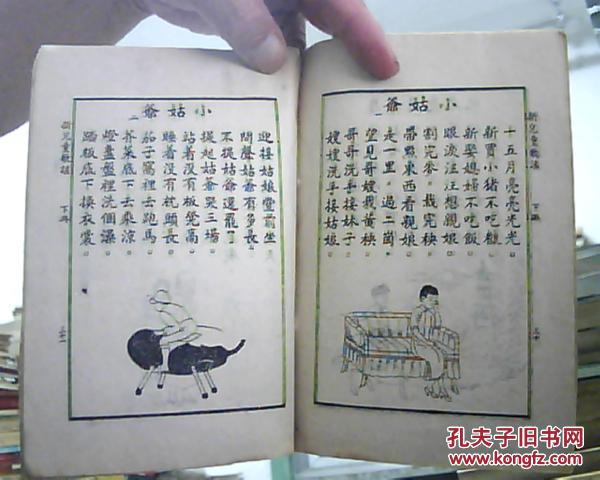 小姑爺
一
新兒童歌謠 下冊
十五月亮亮光光。
新買小豬不吃糠。
新娶媳婦不吃飯。
眼淚汪汪想親娘。
割完麥。栽完秧。
帶點東西看親娘。
走一里。過二崗。
望見哥嫂我黃秧。
哥哥洗手接妹子。
嫂嫂洗手接姑娘。
小姑爺
二
迎接姑娘堂前坐。
問聲姑爺有多長。
不提姑爺還罷了。
提起姑爺哭三場。
站着沒有板凳高。
睡着沒有枕頭長。
茄子窩裡去跑馬。
芥菜底下去乘涼。
燈盞盤裡洗個澡。
踏板底下換衣裳。
新兒童歌謠 下冊
孔夫子旧书网
www.kongfz.com